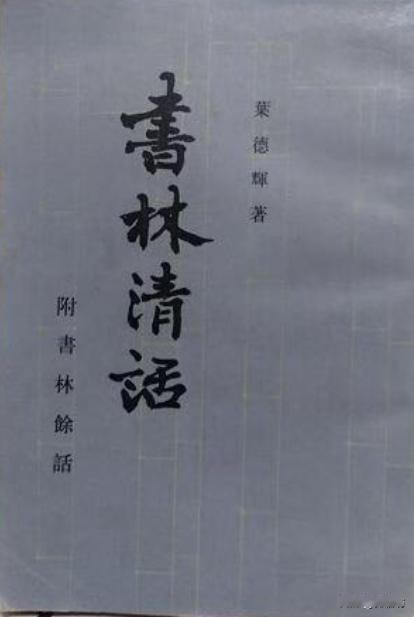 葉德輝著
書林清話
附書林餘話